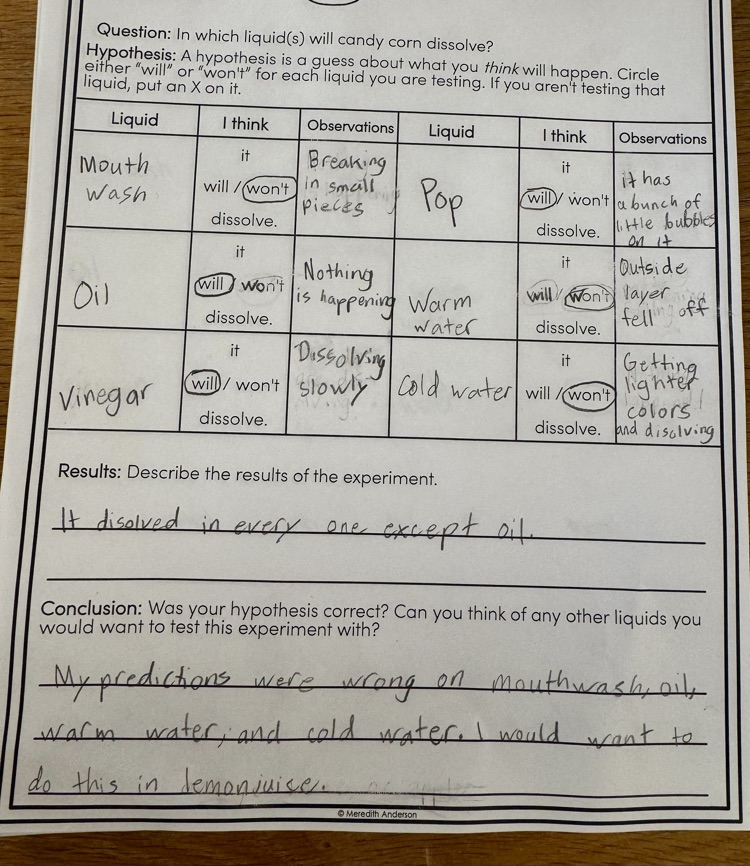 Question: In which liquid(s) will candy corn dissolve?
Hypothesis: A hypothesis is a guess about what you think will happen. Circle
either "will" or "won't" for each liquid you are testing. If you aren't testing that
liquid, put an X on it.
Liquid
I think
Observations
Liquid
I think
Observations
Mouth
wash
it
will / won't
dissolve.
Breaking
in small
pieces
Pop
it
will / won't
dissolve.
it has
a bunch of
little bubbles
on it
Oil
it
will / won't
dissolve.
Nothing
is happening
Warm
water
it
will / won't
dissolve.
Outside
layer
fell off
Vinegar
it
will / won't
dissolve.
Dissolving
slowly
Cold water
it
will / won't
dissolve.
Getting
lighter
colors
and disolving
Results: Describe the results of the experiment.
It disolved in every one except oil.
Conclusion: Was your hypothesis correct? Can you think of any other liquids you
would want to test this experiment with?
My predictions were wrong on mouthwash, oil,
warm water, and cold water. I would want to
do this in lemonjuise.
© Meredith Anderson